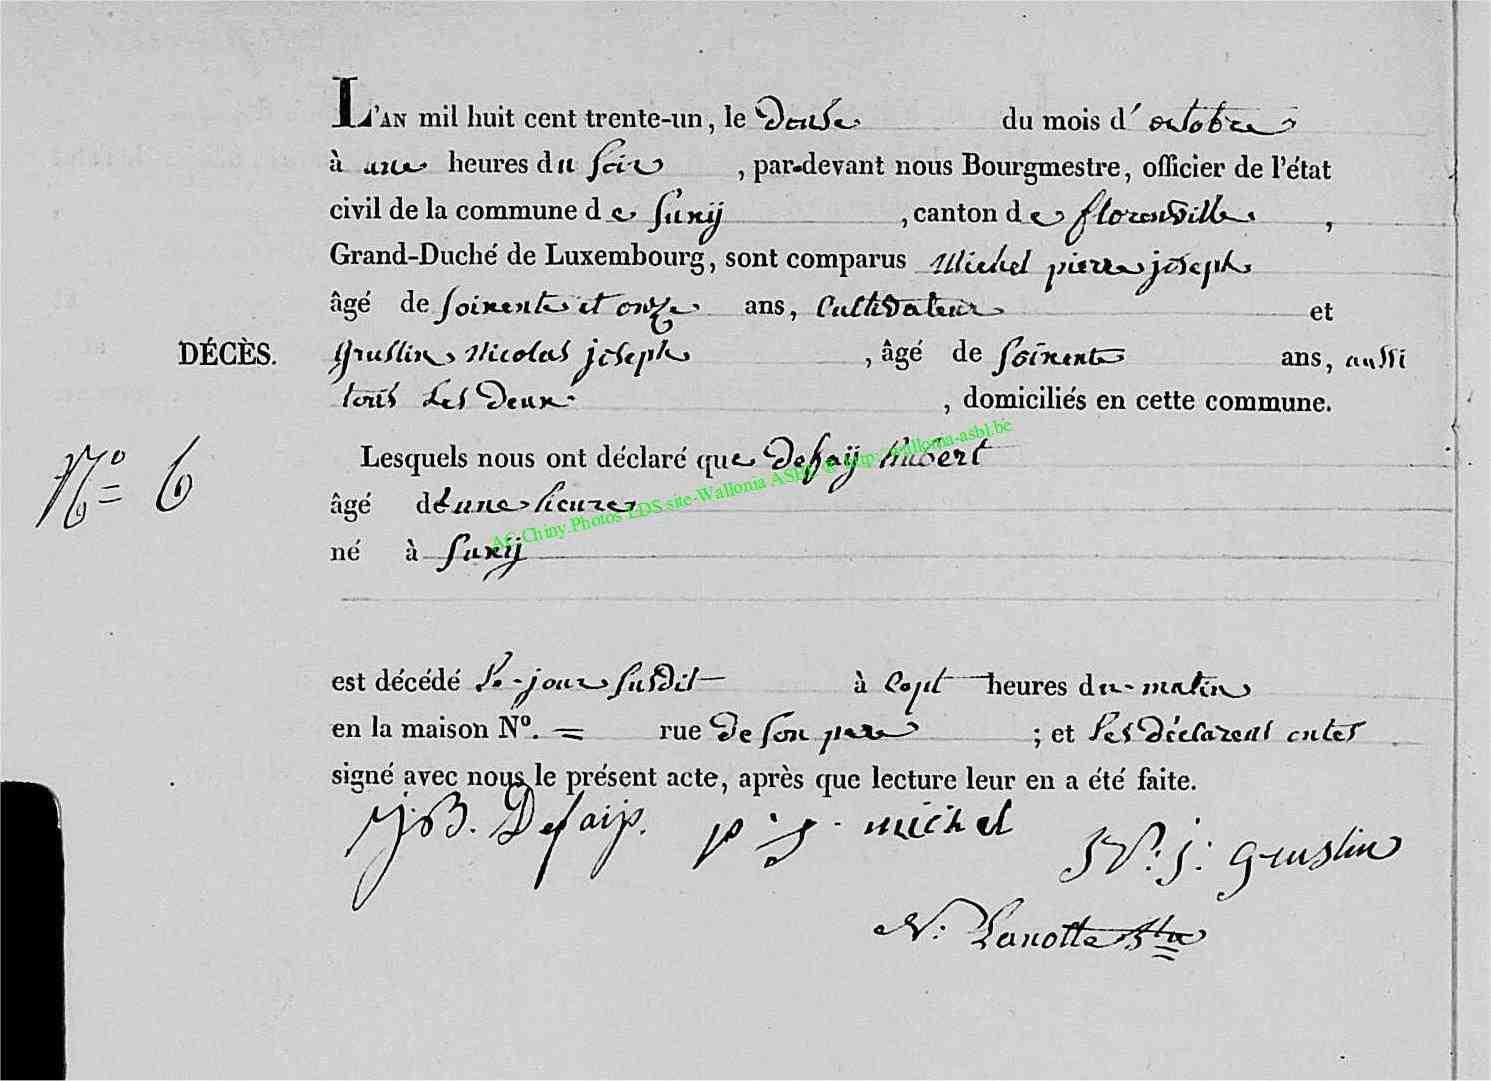 L'AN mil huit cent trente-un, le Douse du mois d'octobre
à une heures du soir, par-devant nous Bourgmestre, officier de l'état
civil de la commune de Suxÿ, canton de florenville,
Grand-Duché de Luxembourg, sont comparus Michel pierre joseph
âgé de soixente et onze ans, Cultivateur et
DÉCÈS. Gruslin Nicolas joseph, âgé de soixente ans, aussi
tous les Deux, domiciliés en cette commune.
Nº = 6 Lesquels nous ont déclaré que Defaÿ hubert
âgé d'une heure
né à Suxÿ
AC Chiny.Photos EDS site-Wallonia ASBL @ http://wallonia-asbl.be
est décédé le jour susdit à sept heures du matin
en la maison Nº. = rue De son pere; et les Déclarent
signé avec nous le présent acte, après que lecture leur en a été faite.
J:B. Defaip. p:j. michel
N:j: gruslin
N: Lanotte